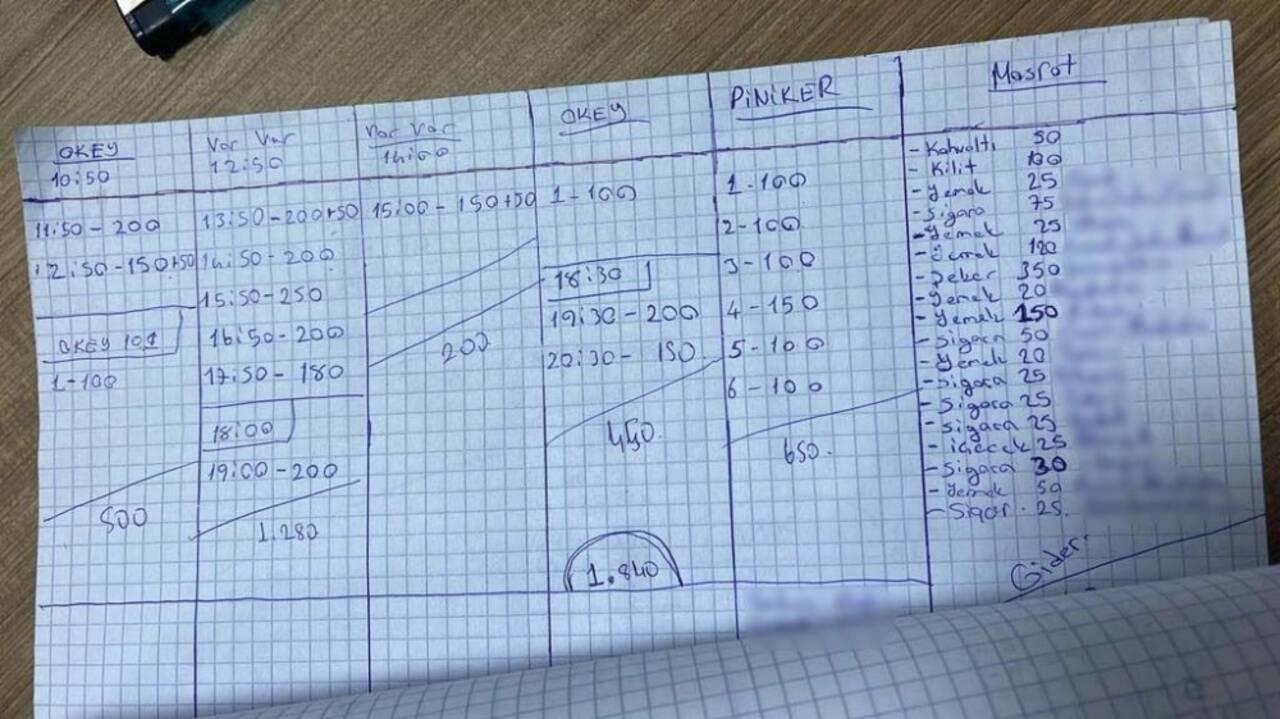 OKEY
10:50
11:50 - 200
12:50 - 150+50
OKEY 101
1-100
500
Var Var
12:50
13:50 - 200+50
14:50 - 200
15:50 - 250
16:50 - 200
17:50 - 180
18:00
19:00 - 200
1.280
Var Var
14:00
15:00 - 150+50
200
OKEY
1-100
18:30
19:30 - 200
20:30 - 150
450.
1.840
PiNiKER
1-100
2-100
3-100
4-150
5-100
6-100
650.
Masraf
- Kahvaltı 50
- Kilit 100
- Yemek 25
- Sigara 75
- Yemek 25
- Yemek 120
- Şeker 350
- Yemek 20
- Yemek 150
- Sigara 50
- Yemek 20
- Sigara 25
- Sigara 25
- Sigara 25
- içecek 25
- Sigara 30
- Yemek 50
- Sigar. 25.
Gider.